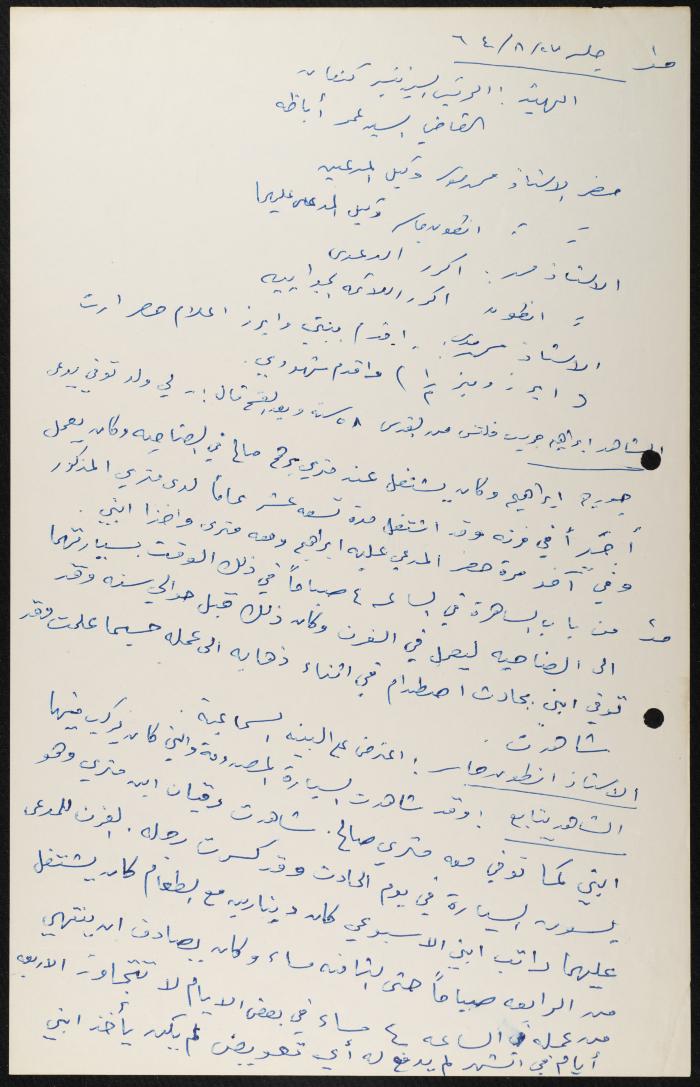 جلسة ٢٧/٨/٦٤
الهيئة : الرئيس السيد نصير كنعان
القاضي السيد عمر أباظه
حضر الاستاذ وكيل المدعين
= = انطون جاسر وكيل المدعى عليهما
الاستاذ : اكرر الدعوى
= انطون اكرر اللائحة الجوابيه
الاستاذ : اقدم بينتي وابرز اعلام حصر ارث
( ابرز وميز م/١ ) واقدم شهودي .
الشاهد ابراهيم فلتس من القدس ٥٨ سنه وبعد القسم قال :- لي ولد توفي يدعى
جورج ابراهيم وكان يشتغل عند متري صالح في الضاحيه وكان يعمل
أجيراً في فرنه وقد اشتغل مدة تسعه عشر عاماً لدى متري المذكور
وفي آخر مرة حضر المدعي عليه ابراهيم ومعه متري واخذا ابني
من باب الساهرة في الساعه ٤ صباحاً في ذلك الوقت بسيارتهما
الى الضاحيه ليعمل في الفرن وكان ذلك قبل حوالي سنه وقد
توفي ابني بحادث اصطدام في اثناء ذهابه الى عمله حسبما علمت وقد
شاهدت
الاستاذ انطون جاسر : اعترض على البينه السماعية
الشاهد يتابع : وقد شاهدت السيارة المصدومة والتي كان يركب فيها
ابني كما توفي معه متري صالح . شاهدت ابن متري وهو
يسوق السيارة في يوم الحادث وقد كسرت رجله . الفرن للمدعى
عليهما راتب ابني الاسبوعي كان دينارين مع الطعام كان يشتغل
من الرابعه صباحاً حتى الثامنه مساء وكان يصادف ان ينتهي
من عمله الساعه ٤ مساء في بعض الايام لا تتجاوز الاربعه
أيام في الشهر لم يدفع له أي تعويض لم يكن يأخذ ابني